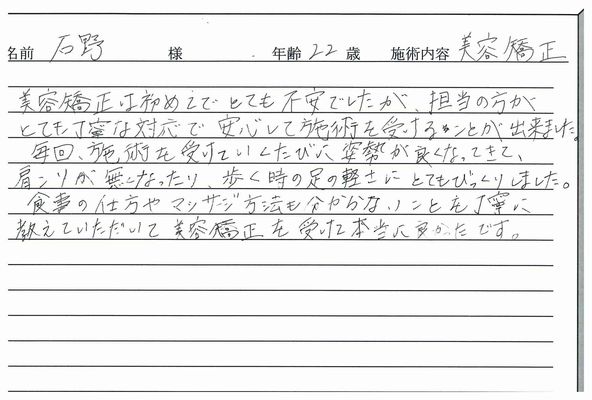 名前 石野 様 年齢 22 歳 施術内容 美容矯正
美容矯正は初めてでとても不安でしたが、担当の方が
とても丁寧な対応で安心して施術を受けることが出来ました。
毎回、施術を受けていくたびに姿勢が良くなってきて、
肩コリが無くなったり、歩く時の足の軽さにとてもびっくりしました。
食事の仕方やマッサージ方法も分からないことを丁寧に
教えていただいて美容矯正を受けて本当に良かったです。